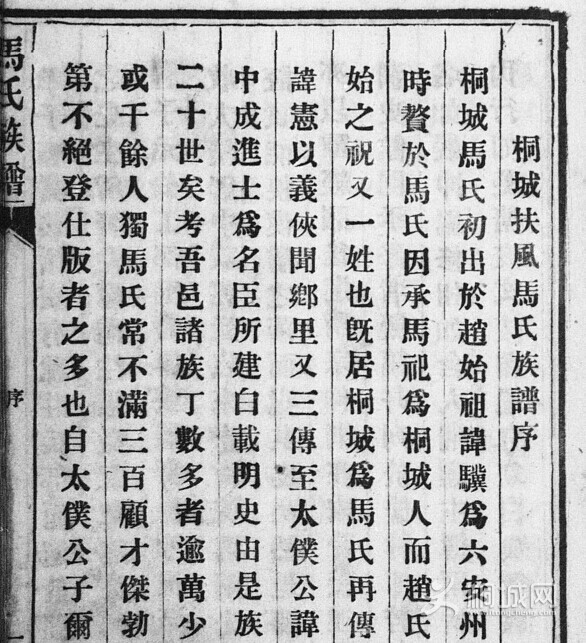 桐城扶風馬氏族譜序
桐城馬氏初出於趙始祖諱驥爲六安州
時贅於馬氏因承馬祀爲桐城人而趙氏
始之祝又一姓也旣居桐城爲馬氏再傳
諱憲以義俠聞鄉里又三傳至太僕公諱
中成進士爲名臣所建白載明史由是族
二十世矣考吾邑諸族丁數多者逾萬少
或千餘人獨馬氏常不滿三百顧才傑勃
第不絕登仕版者之多也自太僕公子爾
馬氏族譜
序
桐城网